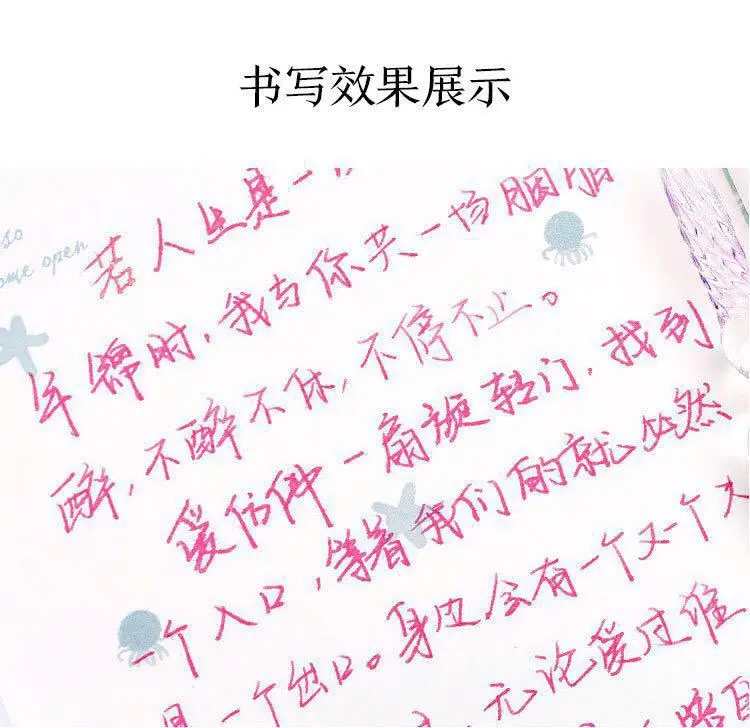 书写效果展示
so
ome open
若人生是一
年锦时,我与你共一场胭脂
醉,不醉不休,不停不止。
爱仿佛一扇旋转门,找到
一个入口,等着我们的就必然
是一个出口。身边会有一个又一个人
,无论爱过谁